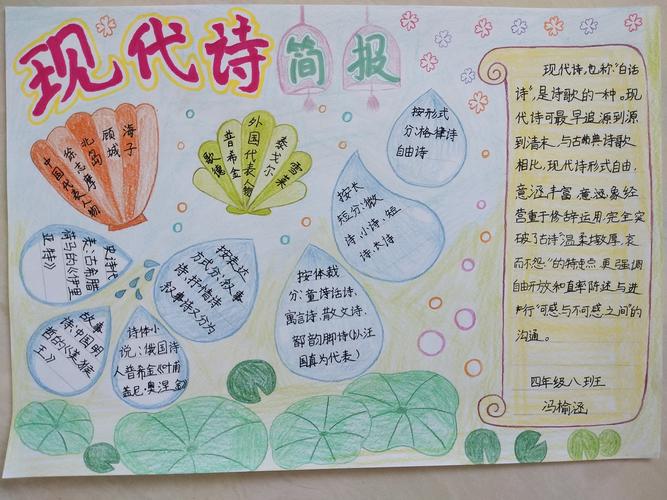 现代诗简报
中国代表人物
徐志摩
北岛
顾城
海子
歌德
普希金
外国代表人物
泰戈尔
雪莱
按形式
分:格律诗
自由诗
按长
短分:微
诗、小诗、短
诗、长诗
按体裁
分:童诗话诗,
寓言诗,散文诗,
韵脚诗(以汪
国真为代表)
按表达
方式分:叙事
诗,抒情诗
叙事诗又分为
史诗代
表:古希腊
荷马的《伊里
亚特》
故事
诗:中国明
哲的
猴
王》
诗体小
说:俄国诗
人普希金《叶甫
盖尼·奥涅金》
现代诗,也称“白话
诗”,是诗歌的一种。现
代诗可最早追源到源
到清末,与古典诗歌
相比,现代诗形式自由,
意涵丰富,意涵象经
营重于修辞运用,完全突
破了古诗“温柔敦厚,哀
而不怨。”的特点,更强调
自由开放和直率陈述与进
行“可感与不可感之间”的
沟通。
四年级八班
冯榆涵